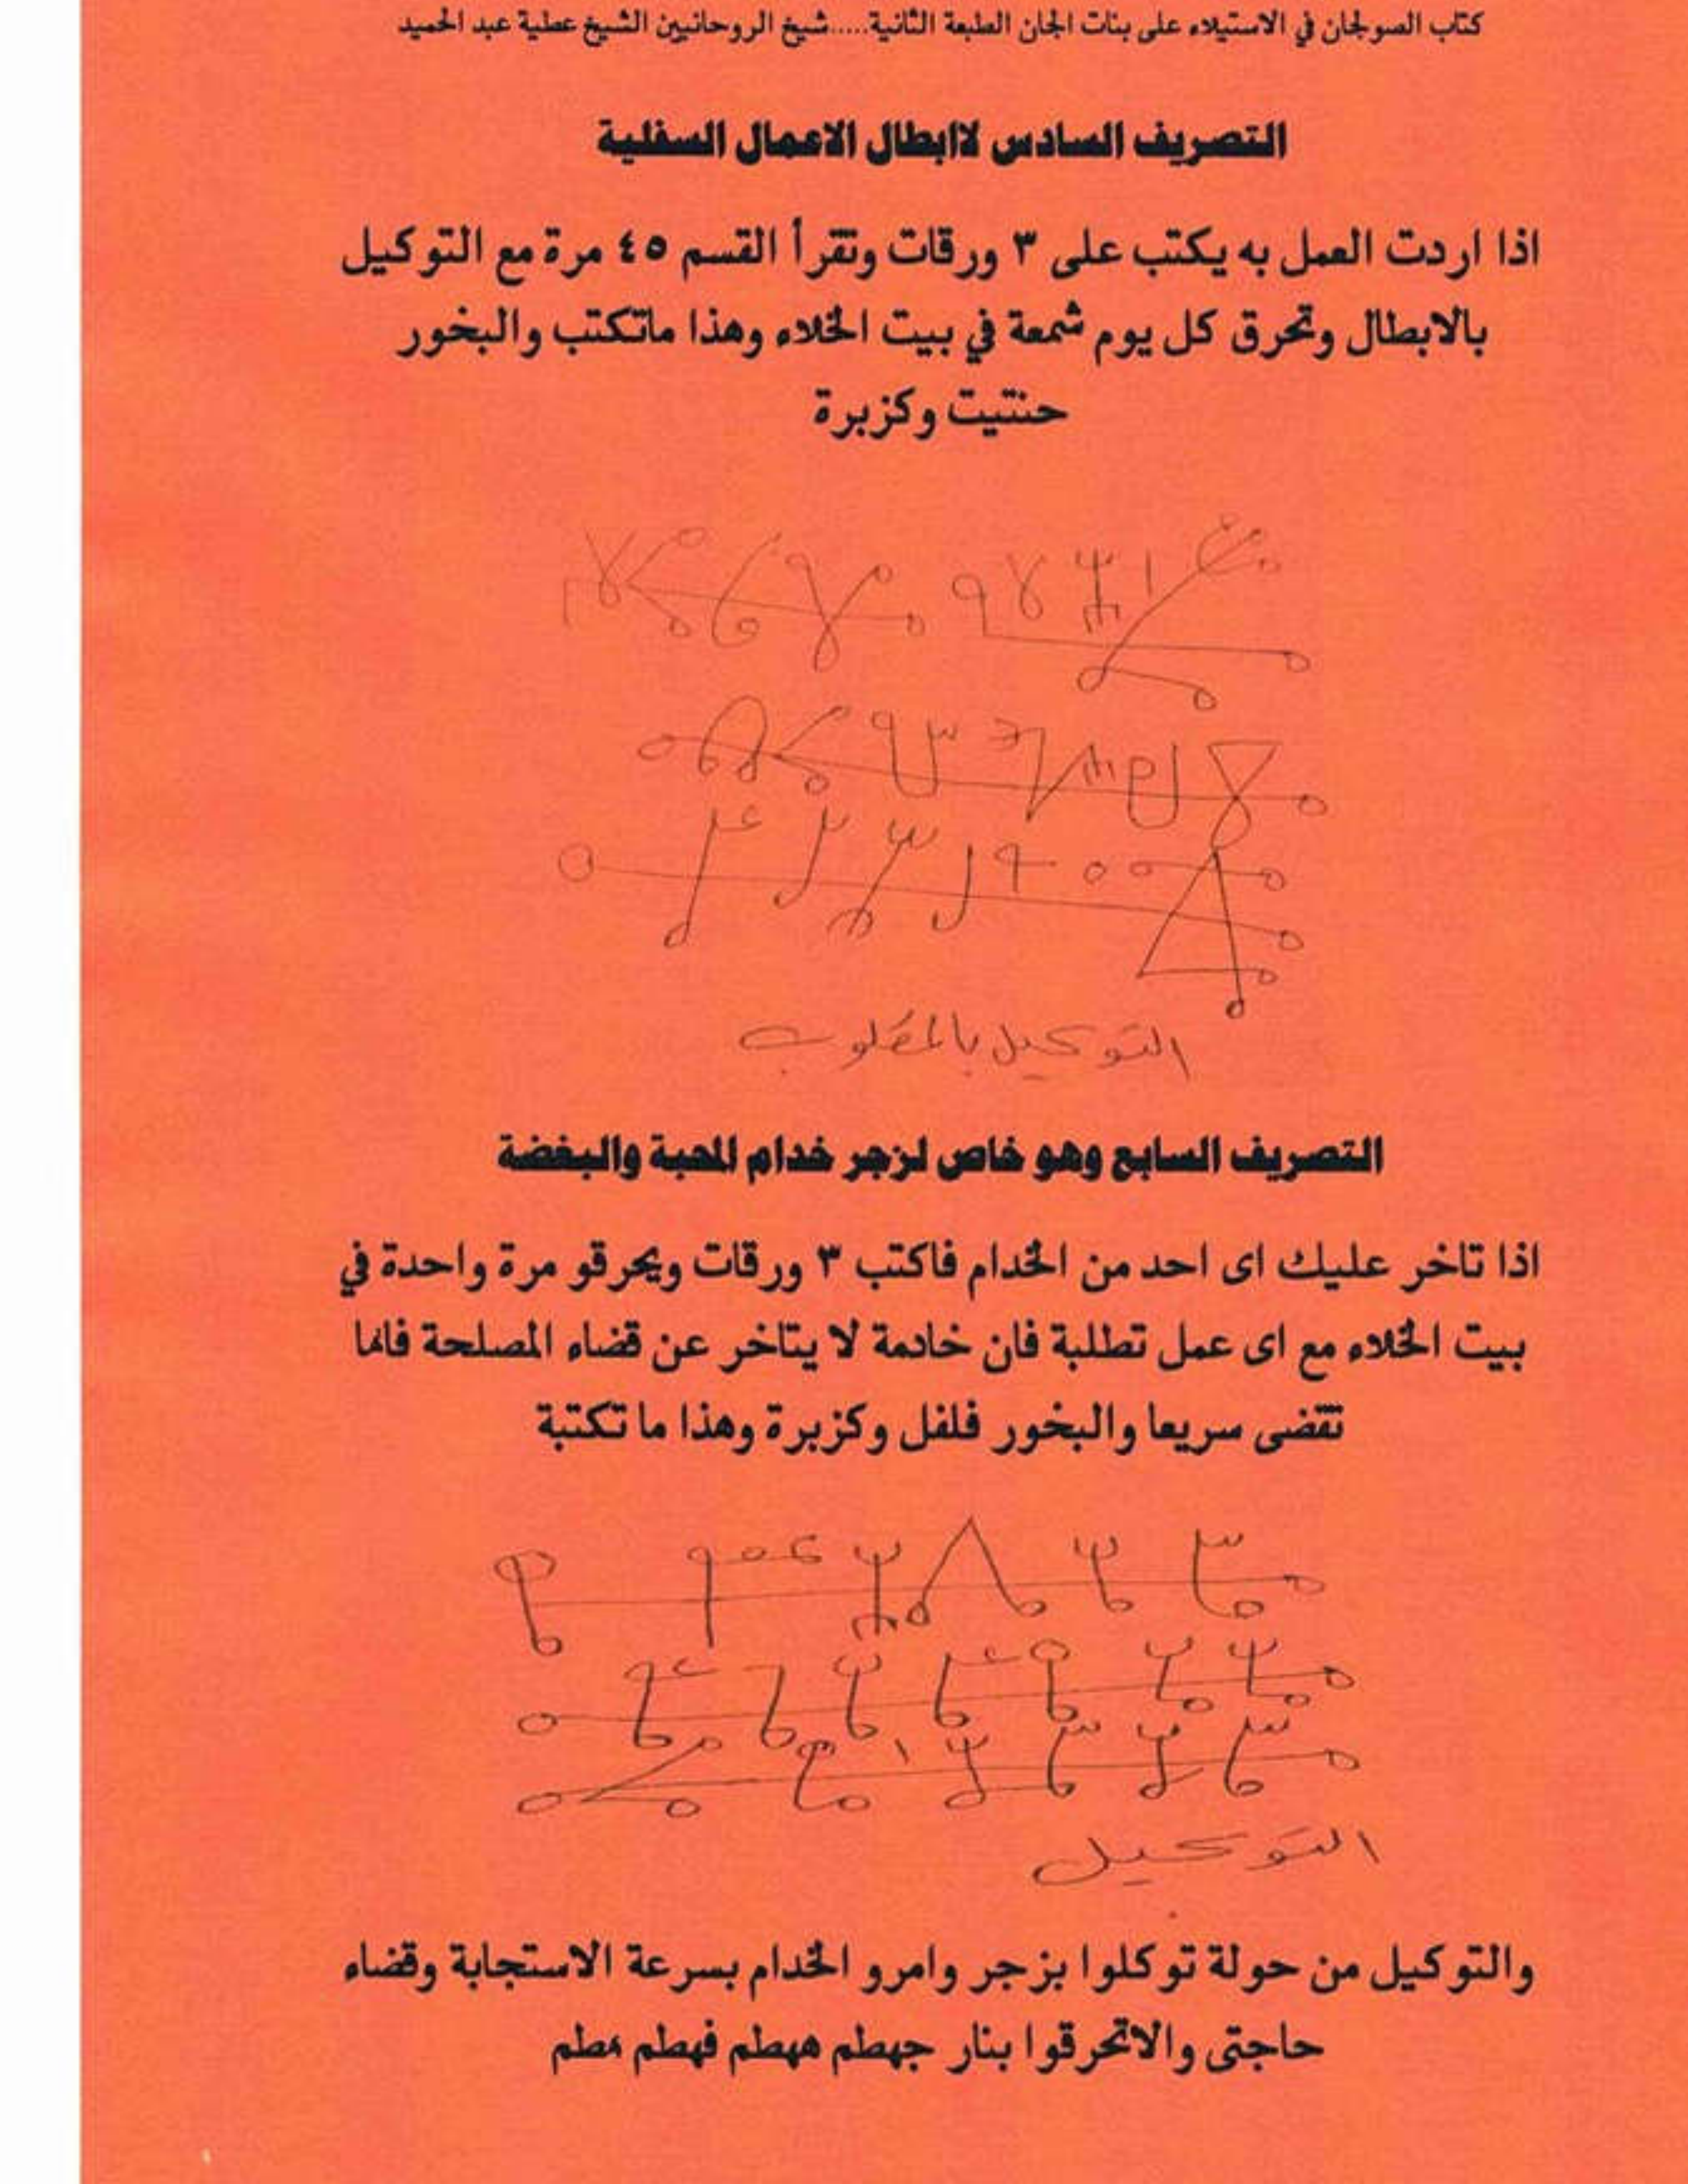 كتاب الصولجان في الاستيلاء على بنات الجان الطبعة الثانية.....شيخ الروحانيين الشيخ عطية عبد الحميد
التصريف السادس لاابطال الاعمال السفلية
اذا اردت العمل به يكتب على ٣ ورقات وتقرأ القسم ٤٥ مرة مع التوكيل
بالابطال وتحرق كل يوم شمعة في بيت الخلاء وهذا ماتكتب والبخور
حنتيت وكزبرة
التوكيل بالمطلوب
التصريف السابع وهو خاص لزجر خدام المحبة والبغضة
اذا تاخر عليك اى احد من الخدام فاكتب ٣ ورقات ويحرقو مرة واحدة في
بيت الخلاء مع اى عمل تطلبة فان خادمة لا يتاخر عن قضاء المصلحة فانما
تقضى سريعا والبخور فلفل وكزبرة وهذا ما تكتبة
التوكيل
والتوكيل من حولة توكلوا بزجر وامرو الخدام بسرعة الاستجابة وقضاء
حاجتى والاتحرقوا بنار جهطم ههطم فهطم